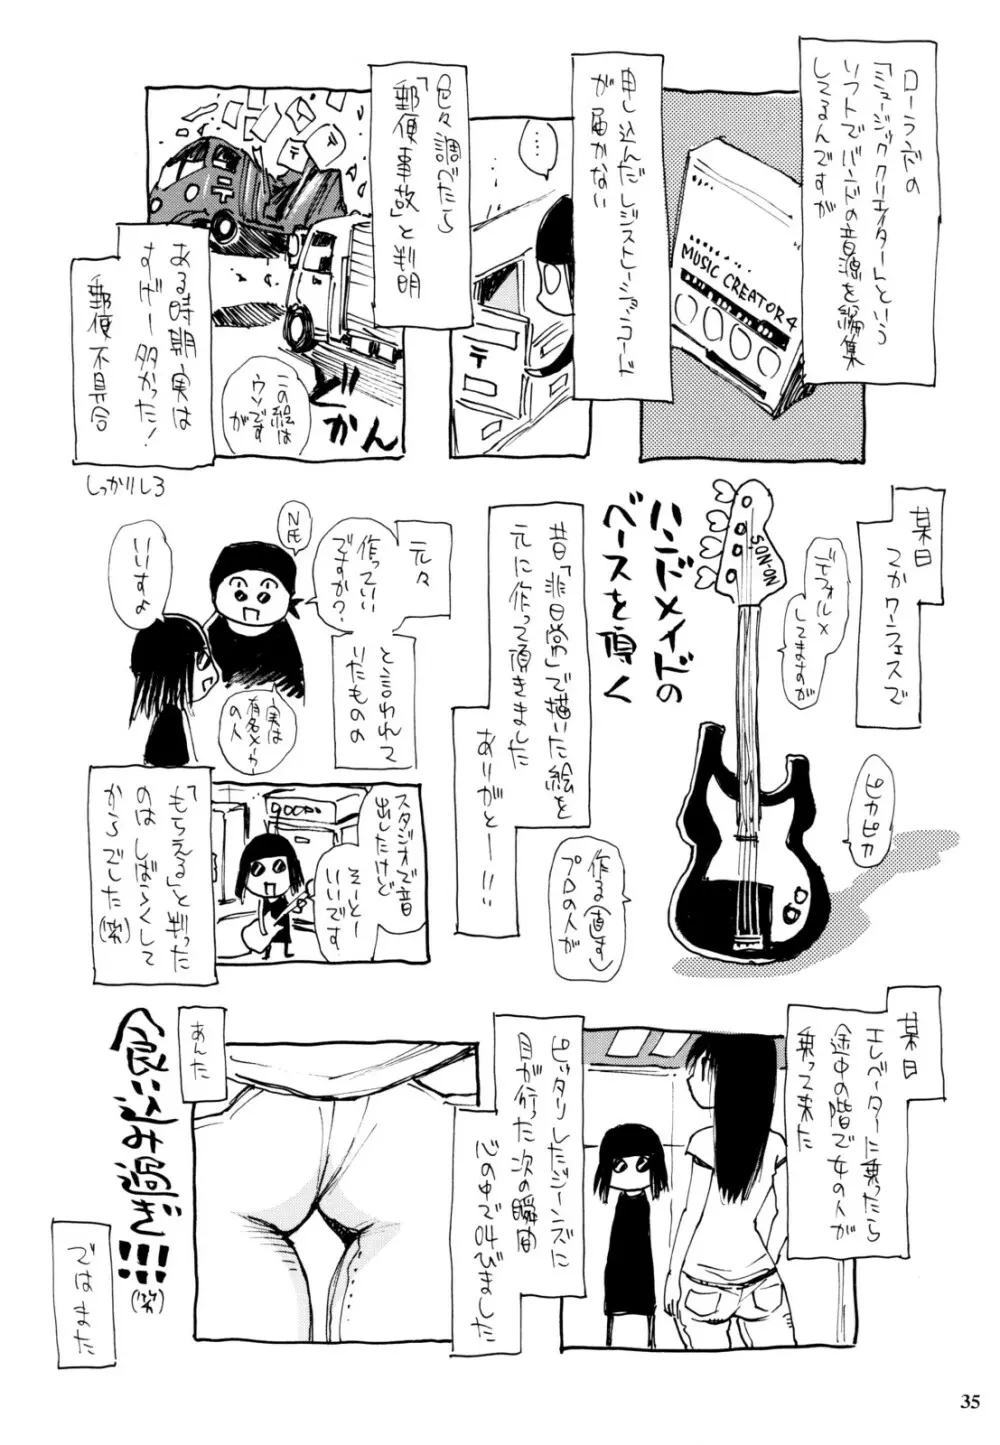 ローランドの
「ミュージッククリエイター」という
ソフトでバンドの音源を編集
してるんですが
MUSIC CREATOR 4
申し込んだレジストレーションコード
が届かない
…
〒
色々調べたら
「郵便事故」と判明
〒
この絵は
ウソです
が
かん
ある時期実は
すげー多かった!
郵便不具合
しっかりしろ
某日
てかワーフェスで
デフォルメ
してますのが
SON-ON
ハンドメイドの
ベースを頂く
ピカピカ
昔「非日常」で描いた絵を
元に作って頂きました
ありがとー!!
作る(直す)
プロの人が
元々
N氏
作っていい
ですか?
いいすよ
と言われて
いたものの
実は
有名メーカー
の人
スタジオで音
出したけど
そーとー
いいです
「もらえる」と判った
のはしばらくして
からでした(笑)
某日
エレベーターに乗ったら
途中の階で女の人が
乗って来た
ピッタリしたジーンズに
目が行った次の瞬間
心の中で叫びました
あんた
食い込み過ぎ!!!
(笑)
ではまた
35